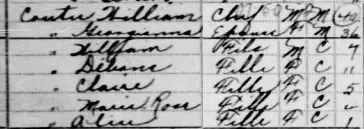 Coutu William Chef M M 40
" Georgianna Epouse F M 36
" William Fils M C 7
" Fille F C 11
" Claire Fille F C 5
" Marie Rose Fille F C
" Alice Fille F C 1